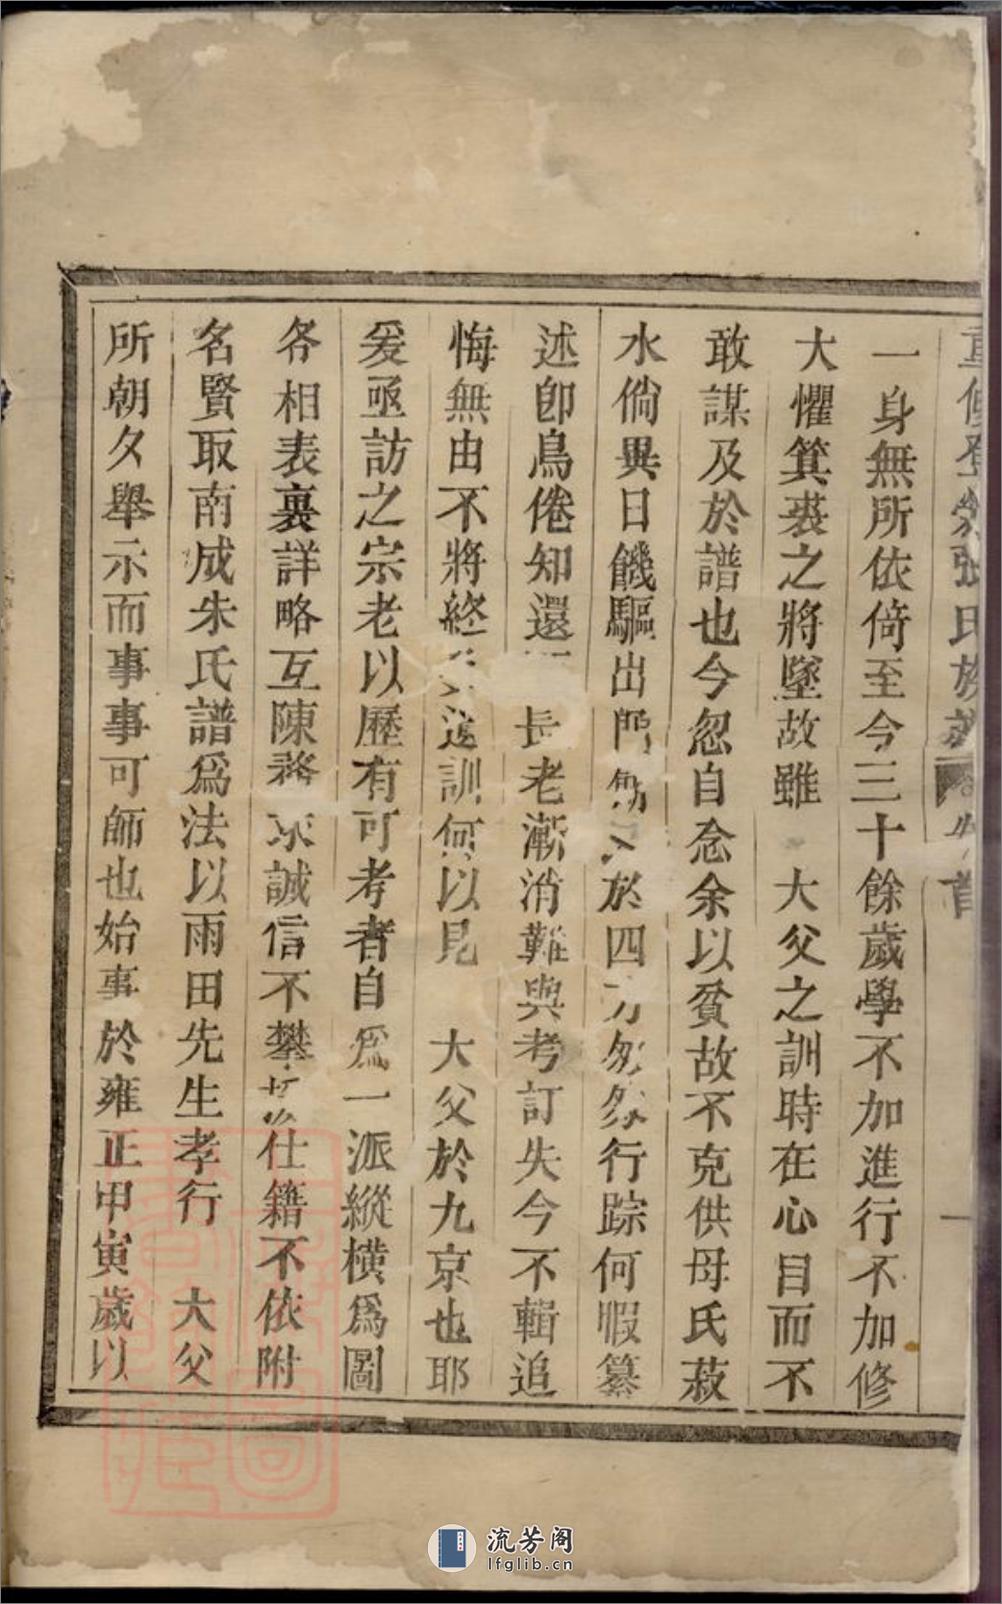 重修登榮張氏族譜 卷首 一
一身無所依倚至今三十餘歲學不加進行不加修
大懼箕裘之將墜故雖 大父之訓時在心目而不
敢謀及於譜也今忽自念余以貧故不克供母氏菽
水倘異日饑驅出門於四方匆匆行踪何暇纂
述卽鳥倦知還長老漸消難與考訂失今不輯追
悔無由不將終遠訓何以見 大父於九京也耶
爰亟訪之宗老以歷有可考者自爲一派縱橫爲圖
各相表裏詳略互陳務求誠信不攀仕籍不依附
名賢取南成朱氏譜爲法以雨田先生孝行 大父
所朝夕舉示而事事可師也始事於雍正甲寅歲以
流芳阁
lfglib.cn